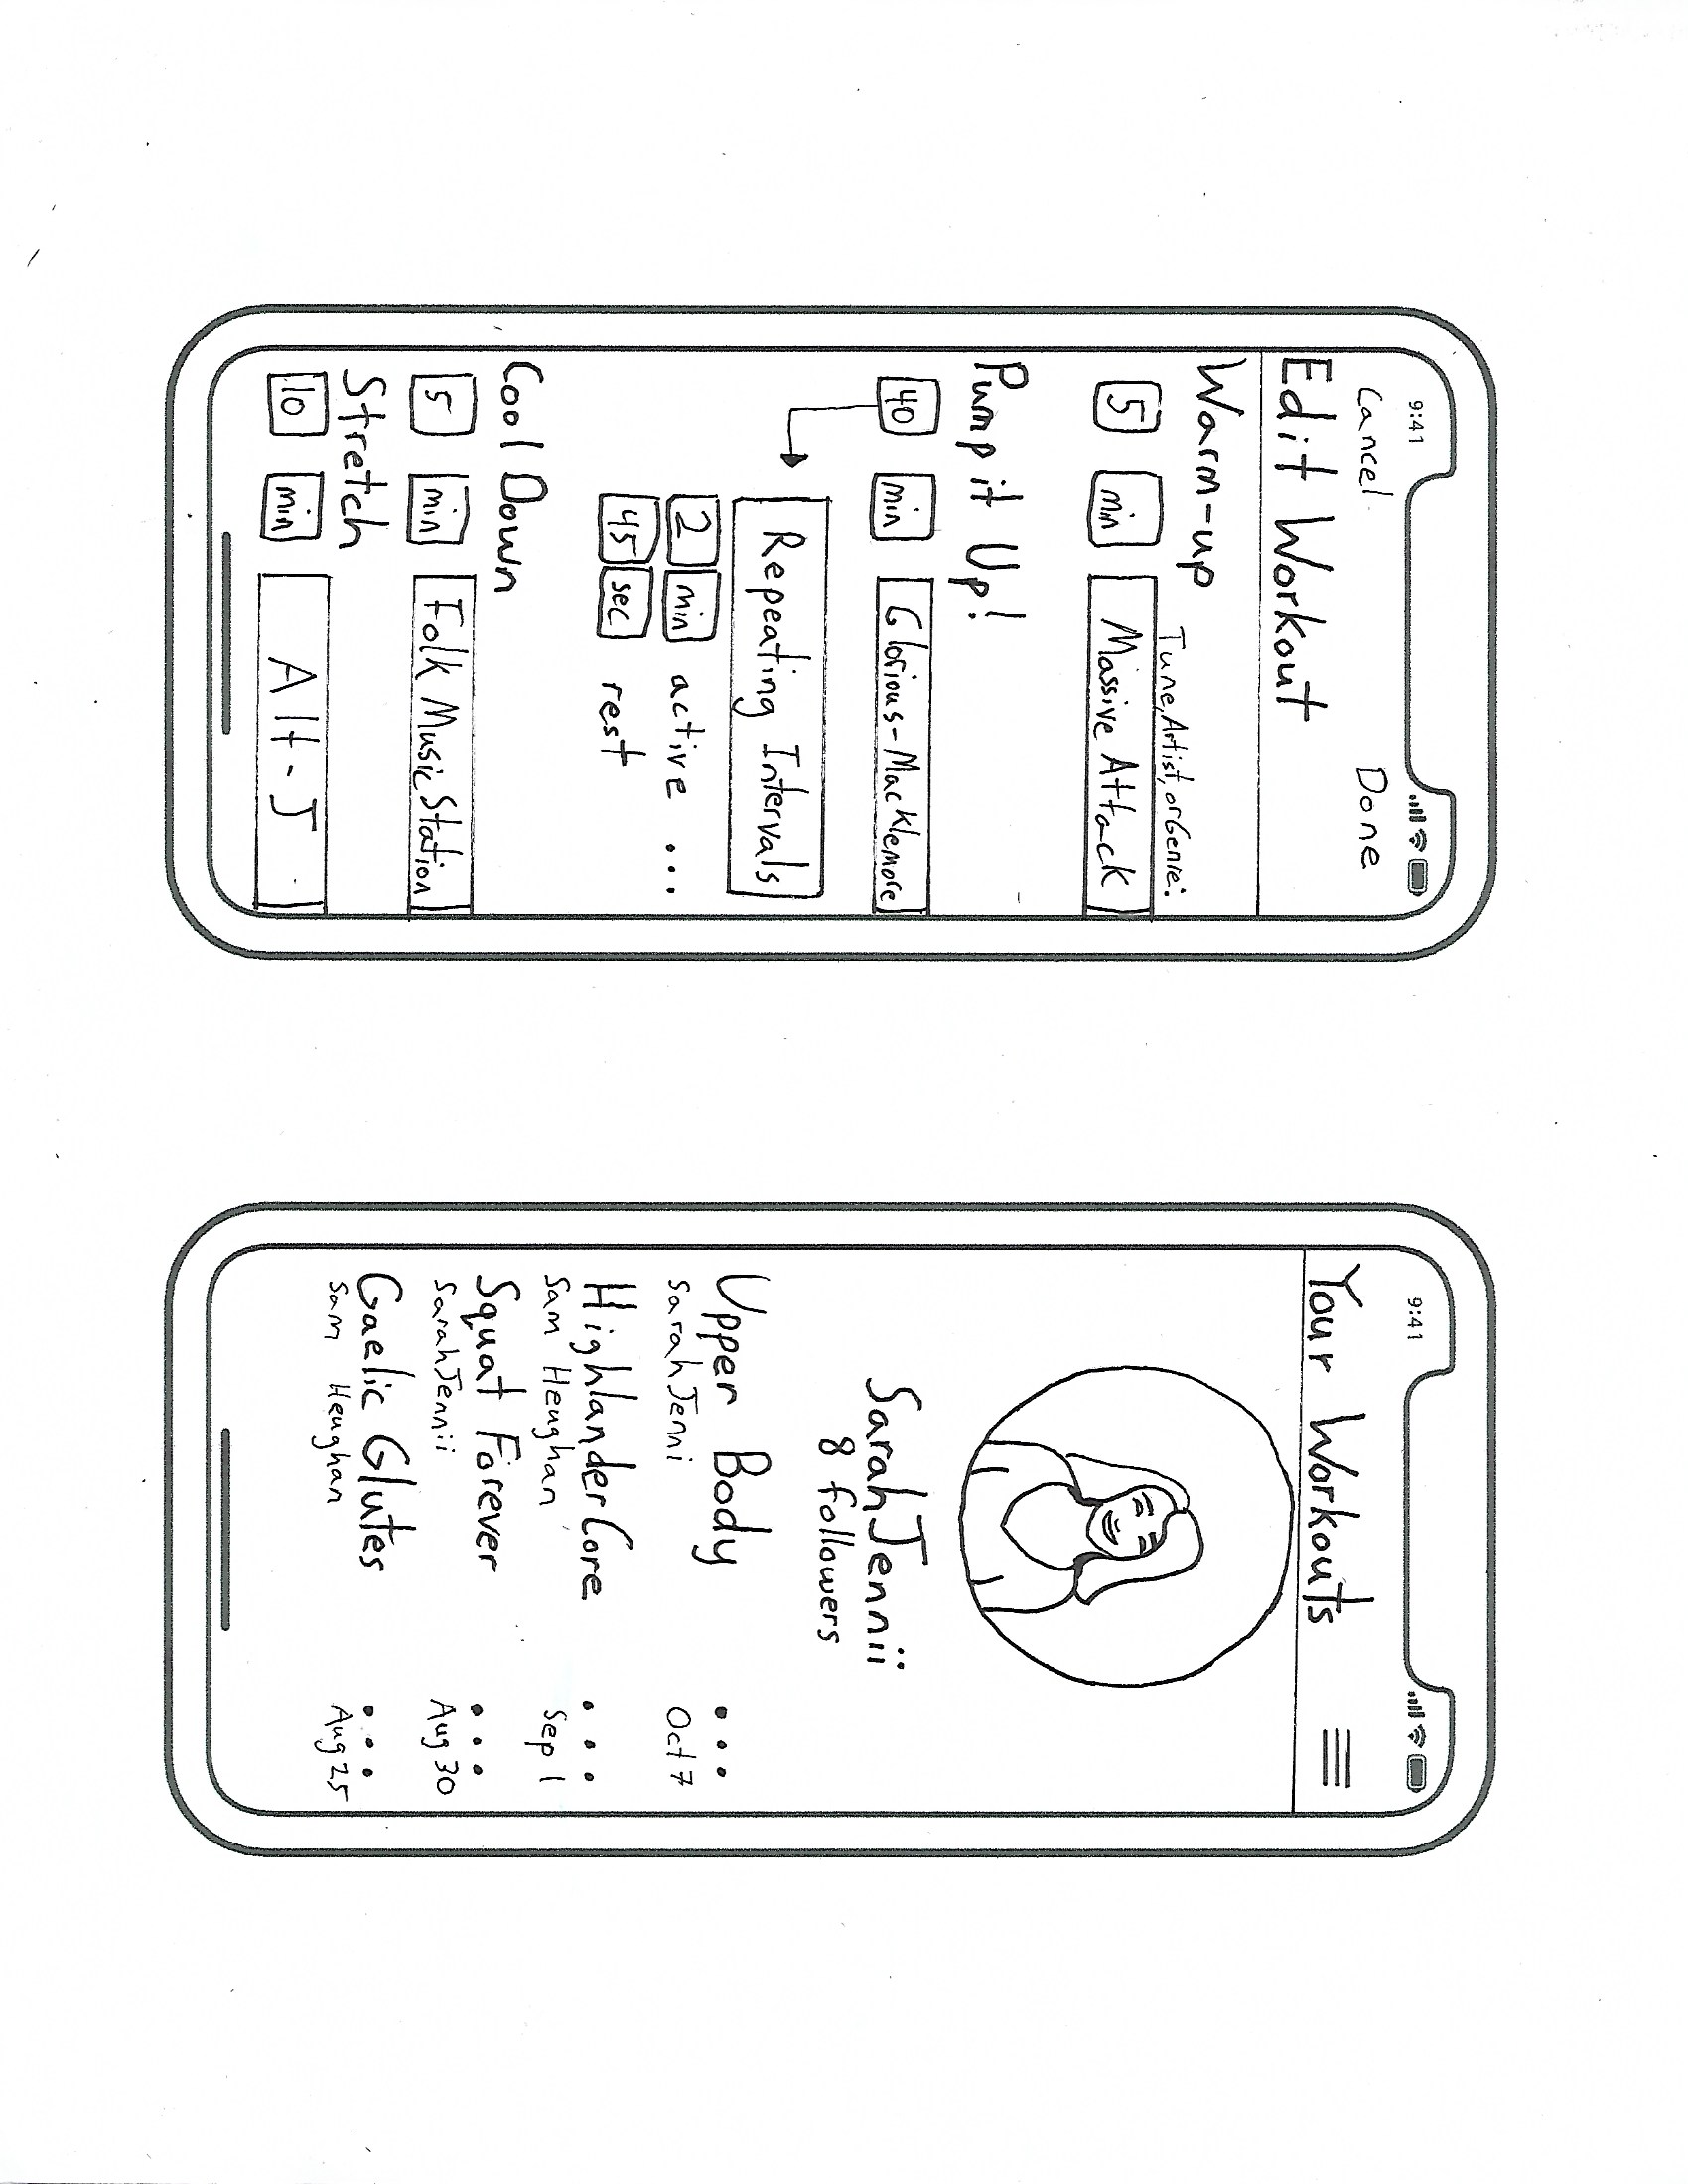 9:41
Cancel Done
Edit Workout
Warm-up
Tune, Artist, or Genre:
5 min Massive Attack
Pump it Up!
40 min Glorious-Macklemore
Repeating Intervals
2 min active ...
45 sec rest
Cool Down
5 min Folk Music Station
Stretch
10 min Alt-J
9:41
Your Workouts
SarahJennii
8 followers
Upper Body ...
SarahJenni Oct 7
Highlander Core ...
Sam Heughan Sep 1
Squat Forever ...
SarahJennii Aug 30
Gaelic Glutes ...
Sam Heughan Aug 25